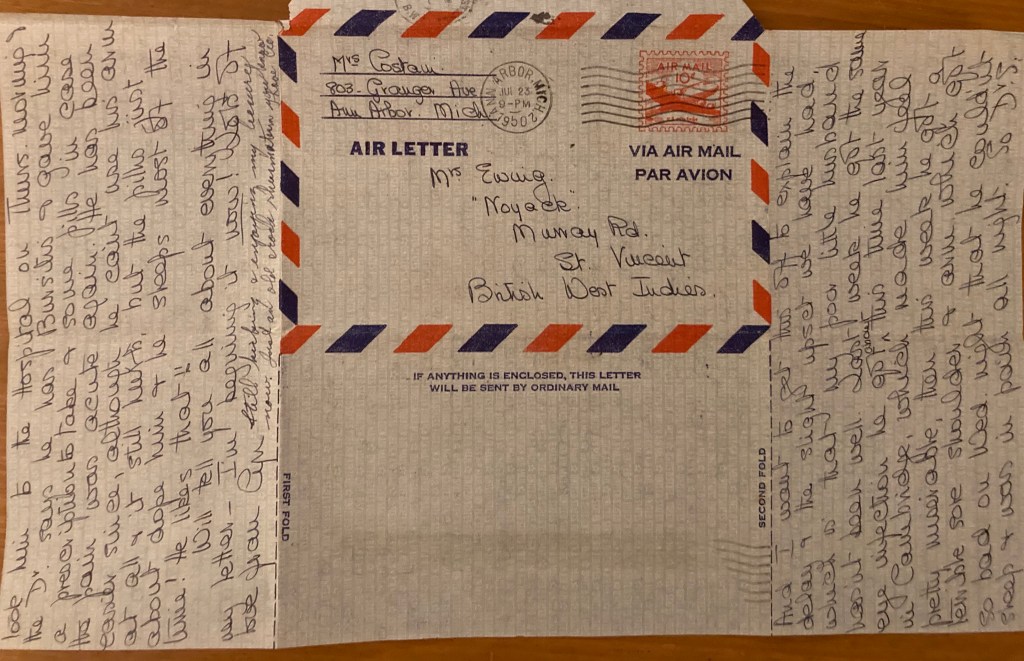 Mrs Costani
803 - Granger Ave
Ann Arbor. Mich
ANN ARBOR, MICH.
JUL 23
9-PM
1950
AIR MAIL
10¢
AIR LETTER
VIA AIR MAIL
PAR AVION
Mrs Ewing.
"Noyack"
Murray Rd.
St. Vincent
British West Indies.
IF ANYTHING IS ENCLOSED, THIS LETTER
WILL BE SENT BY ORDINARY MAIL
FIRST FOLD
SECOND FOLD
And I want to get this off to explain the
delay & the slight upset we have had,
which is that my poor little husband
hasn't been well. Last week he got the same
eye infection he got about this time last year
in Cambridge, which made him feel
pretty miserable, then this week he got a
terrible sore shoulder & arm which got
so bad on Wed. night that he couldn't
sleep & was in pain all night. So
took him to the Hospital on Thurs. morning &
the Dr. says he has Bursitis & gave him
a prescription to take & some pills in case
the pain was acute again. He has been
easier since, although he can't use his arm
at all & it still hurts, but the pills just
about dope him & he sleeps most of the
time! He likes that!!
Will tell you all about everything in
my letter - I'm beginning it now! Lots of
love from Cyn
Still & enjoying my
now